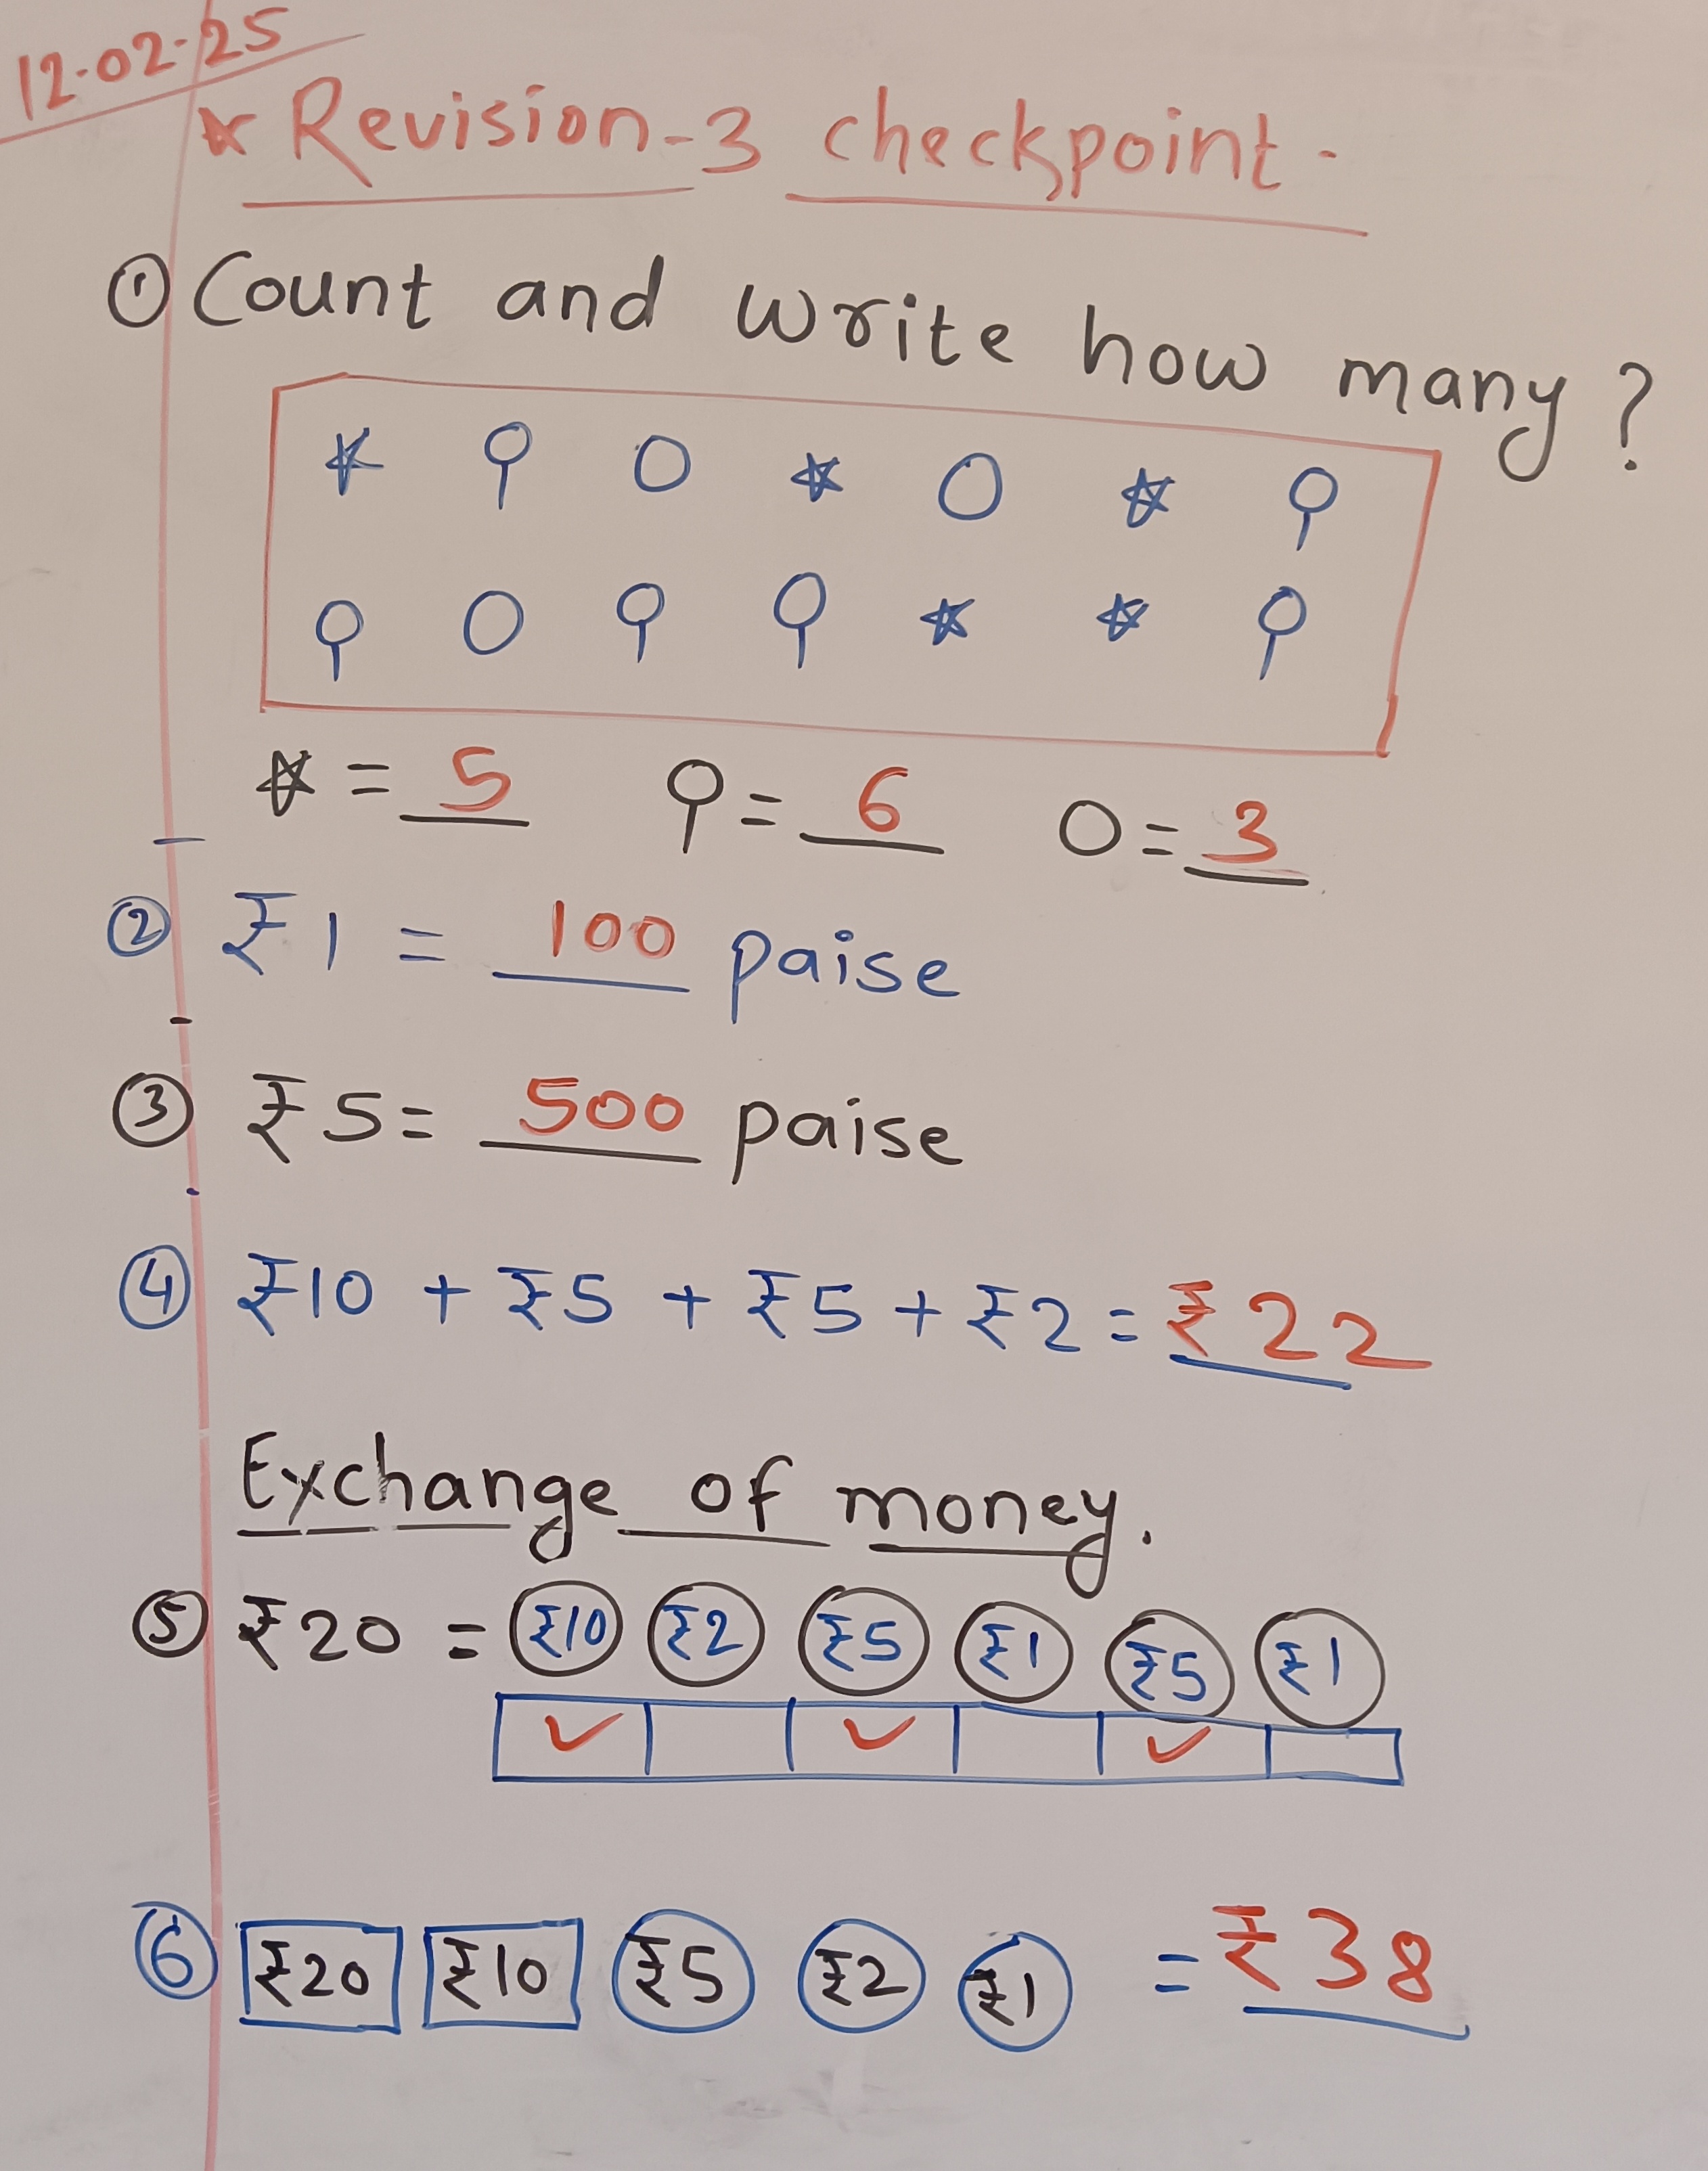 12-02-25
* Revision-3 checkpoint.
① Count and write how many?
☆ = 5 ⚲ = 6 O = 3
② ₹1 = 100 paise
③ ₹5 = 500 paise
④ ₹10 + ₹5 + ₹5 + ₹2 = ₹22
Exchange of money.
⑤ ₹20 = ₹10 ₹2 ₹5 ₹1 ₹5 ₹1
✓ ✓ ✓
⑥ ₹20 ₹10 ₹5 ₹2 ₹1 = ₹38